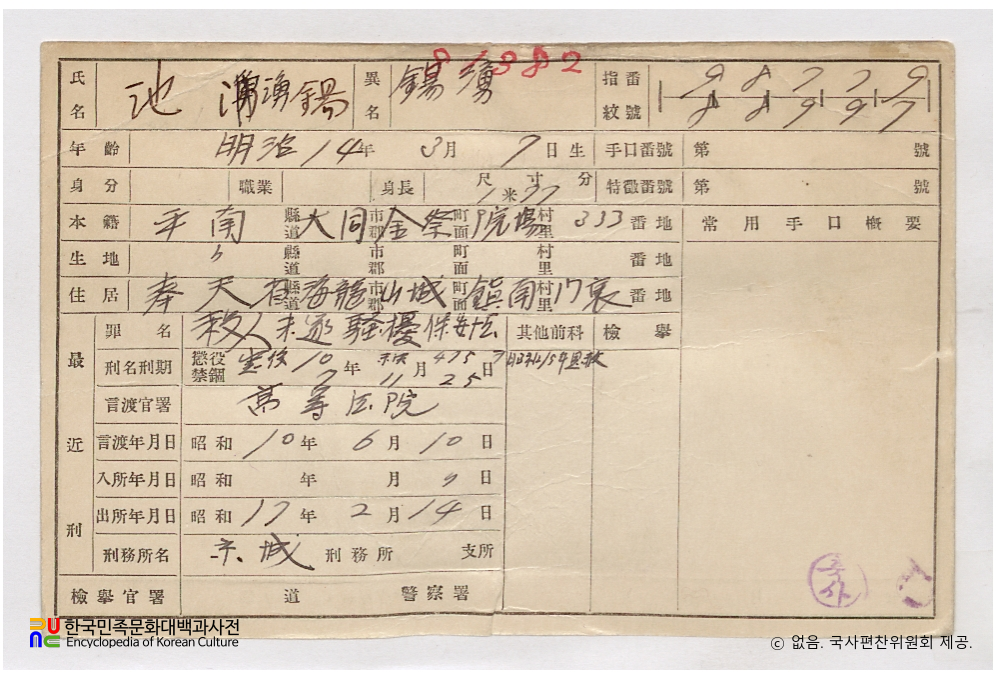 81382
氏名 池 湧湧錫 異名 錫湧 指紋番號 8 8 7 7 9 / 8 8 9 9 7
年齡 明治14年 3月 7日生 手口番號 第 號
身分 職業 身長 尺 寸 分 1米77 特徵番號 第 號
本籍 平南 縣道 大同 市郡 金祭 町面 院場 村里 333 番地 常用手口槪要
生地 〃 縣道 市郡 町面 村里 番地
住居 奉天省 縣道 海龍 市郡 山城 町面 鎭南 村里 17 番地
最近刑 罪名 殺人未遂騷擾保安法 其他前科 檢擧
刑名刑期 懲役禁錮 懲役 10年 未決 475日 7年 11月 25
言渡官署 高等法院
言渡年月日 昭和10年 6月 10日
入所年月日 昭和 年 月 〃日
出所年月日 昭和17年 2月 14日
刑務所名 京城 刑務所 支所
檢擧官署 道 警察署
한국민족문화대백과사전
Encyclopedia of Korean Culture
ⓒ 없음. 국사편찬위원회 제공.